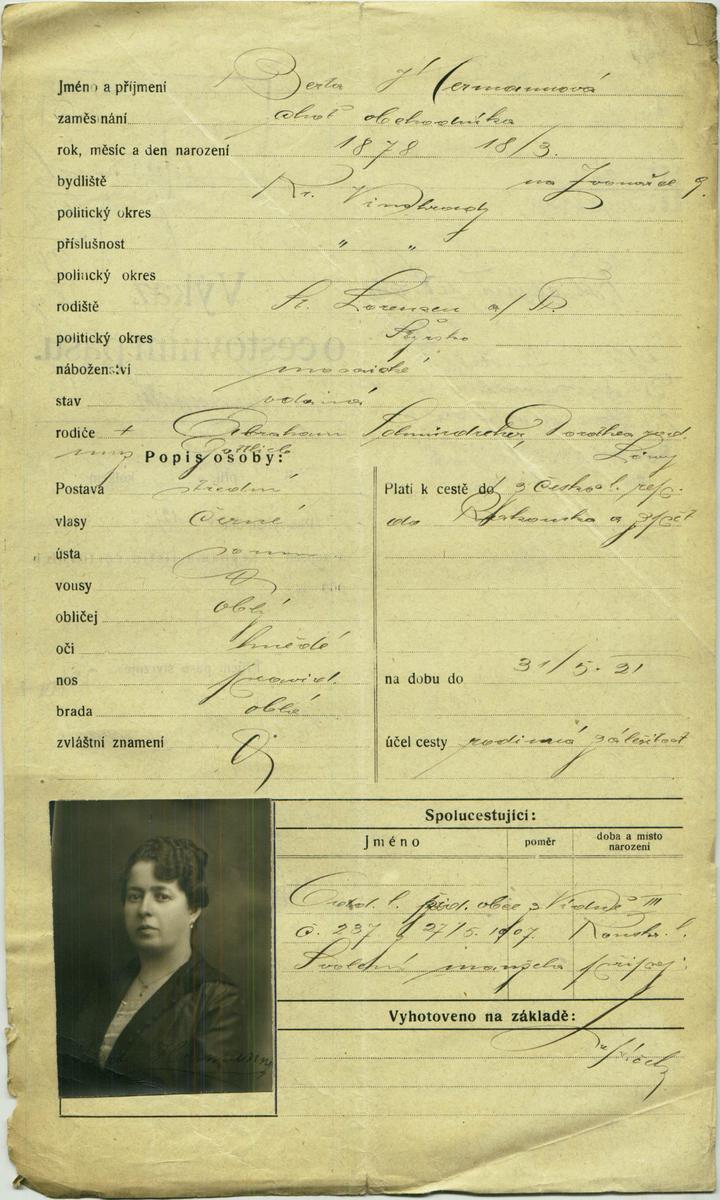 Jméno a příjmení Berta Heřmannová
zaměstnání choť obchodníka
rok, měsíc a den narození 1878 18/3.
bydliště Kr. Vinohrady na Zvonařce 9.
politický okres
příslušnost " "
politický okres
rodiště St. Lorenzen a/
politický okres Štýrsko
náboženství mosaické
stav vdaná
rodiče + Abraham Dorothea rod.
Löwy
Popis osoby:
Postava střední
vlasy černé
ústa norm
vousy
obličej oblý
oči hnědé
nos pravid.
brada oblá
zvláštní znamení
Platí k cestě do z Českosl. rep.
do Rakouska a zpět
na dobu do 31/5. 21
účel cesty rodinná záležitost
Spolucestující:
Jméno poměr doba a místo narození
Oddd. l. žid. obce z Vídně III
č. 237 z 27/5. 1907.
Svolení manžela připoj.
Vyhotoveno na základě:
Výkaz
o cestovním pasu.